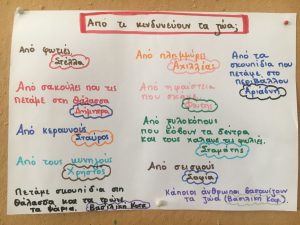 Από τι κινδυνεύουν τα ζώα;
Από φωτιές
Στέλλα
Από σακούλες που τις
πετάμε στη θάλασσα
Δήμητρα
Από κεραυνούς
Σταύρος
Από τους κυνηγούς
Χρήστος
Πετάμε σκουπίδια στη
θάλασσα και τα τρώνε
τα ψάρια. (Βασιλική Κατ.)
Από πλημμύρες
Αχιλλέας
Από ηφαίστεια
που σκάνε
Από ξυλοκόπους
που κόβουν τα δέντρα
και τους χαλάνε τις φωλιές.
Σταμάτης
Από σεισμούς
Σοφία
Από τα
σκουπίδια που
πετάμε στο
περιβάλλον
Αριάδνη
Κάποιοι άνθρωποι βασανίζουν
τα ζώα (Βασιλική Καρ.)